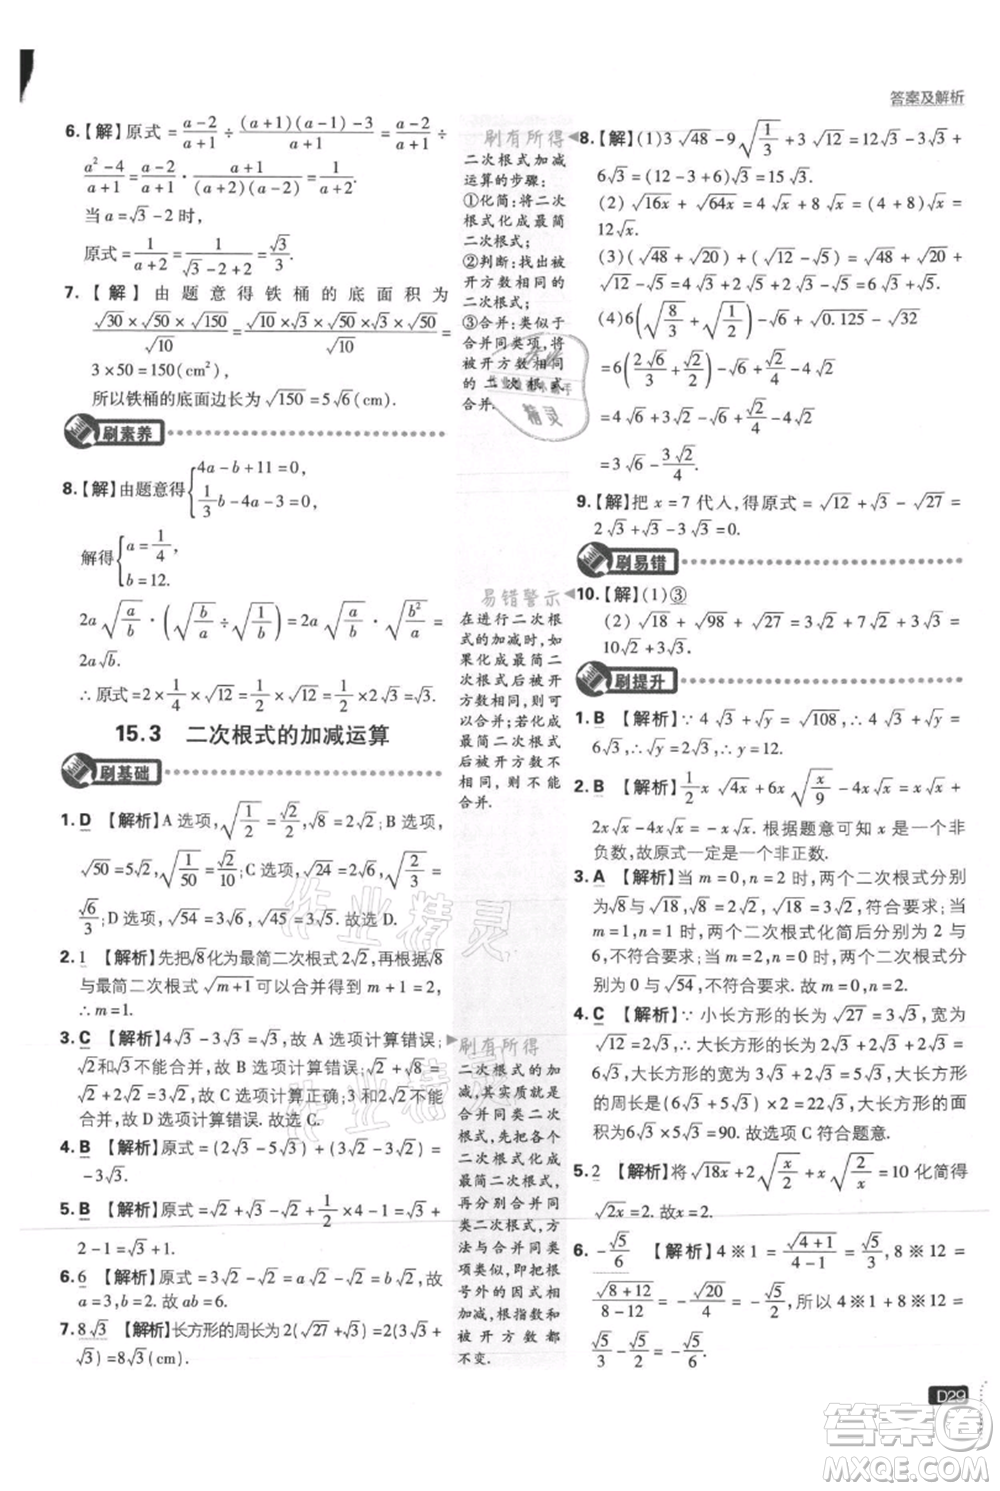 答案及解析
6.【解】原式=\frac{a-2}{a+1}÷\frac{(a+1)(a-1)-3}{a+1}=\frac{a-2}{a+1}÷
\frac{a²-4}{a+1}=\frac{a-2}{a+1}·\frac{a+1}{(a+2)(a-2)}=\frac{1}{a+2}.
当 a=√3-2时,
原式=\frac{1}{a+2}=\frac{1}{√3-2+2}=\frac{√3}{3}.
7.【解】由题意得铁桶的底面积为
\frac{√30×√50×√150}{√10}=\frac{√10×√3×√50×√3×√50}{√10}=
3×50=150(cm²),
所以铁桶的底面边长为√150=5√6(cm).
刷素养
8.【解】由题意得{4a-b+11=0, \frac{1}{3}b-4a-3=0,
解得{a=\frac{1}{4}, b=12.
2a√\frac{a}{b}·(√\frac{b}{a}÷√\frac{1}{b})=2a√\frac{a}{b}·√\frac{b²}{a}=
2a√b.
∴原式=2×\frac{1}{4}×√12=2×\frac{1}{4}×2√3=√3.
15.3 二次根式的加减运算
刷基础
1. D 【解析】A选项,√\frac{1}{2}=\frac{√2}{2},√8=2√2;B选项,
√50=5√2,√\frac{1}{50}=\frac{√2}{10};C选项,√24=2√6,√\frac{2}{3}=
\frac{√6}{3};D选项,√54=3√6,√45=3√5.故选D.
2. 1 【解析】先把√8化为最简二次根式2√2,根据√8
与最简二次根式√(m+1)的和可以合并得到m+1=2,
∴m=1.
3. C 【解析】4√3-3√3=√3,故A选项计算错误;
√2和√3不能合并,故B选项计算错误;√8-√2=
2√2-√2=√2,故C选项计算正确;3和2√2不能合
并,故D选项计算错误.故选C.
4. B 【解析】原式=(2√3-5√3)-√2+√2=
-3√3.
5. B 【解析】原式=√2×√2+\frac{1}{2}×4-1=
2+2-1=3.
6. 6 【解析】原式=3√2-a√2+3√2=a√2,故
a=3-a+3,故2a=6,a=3.
7. 8√3 【解析】长方形的周长为2(√27+√3)=2(3√3+
√3)=8√3(cm)
刷有所得
二次根式加减
运算的步骤:
①化简:将二次
根式化成最简
二次根式;
②判断:找出被
开方数相同的
二次根式;
③合并:类似于
合并同类项,将
被开方数相同
的二次根式
合并.
易错警示
在进行二次根
式的加减时,如
果化成最简二
次根式后被开
方数相同,则可
以合并;若化成
最简二次根式
后被开方数不
相同,则不能
合并.
刷有所得
二次根式的加
减,其实质就是
合并同类二次
根式,先把各个
二次根式化成
最简二次根式,
再分别合并同
类二次根式,方
法与合并同类
项类似,即把根
号外的因式相
加减,根指数和
被开方数都
不变.
8.【解】(1)3√48-9√\frac{1}{3}+3√12=12√3-3√3+
6√3=(12-3+6)√3=15√3.
(2)√16x+√64x=4√x+8√x=(4+8)√x=
12√x.
(3)(√48+√20)+(√12-√5)=√48+√20+
√12-√5=4√3+2√5+2√3-√5=6√3+√5.
(4)6(√\frac{8}{3}+√\frac{1}{2})-√6+√0.125-√32
=6(\frac{2√6}{3}+\frac{√2}{2})-√6+\frac{√2}{4}-4√2
=4√6+3√2-√6+\frac{√2}{4}-4√2
=3√6-\frac{3√2}{4}.
9.【解】把x=7代入,得原式=√12+√3-√27=
2√3+√3-3√3=0.
刷易错
10.【解】(1)③
(2)√18+√98+√27=3√2+7√2+3√3=
10√2+3√3.
刷提升
1. B 【解析】∵4√3+√y=√108,∴√y=√108-4√3=
6√3-4√3=2√3,∴√y=√12,∴y=12.
2. B 【解析】\frac{1}{2}x√4x+6x√\frac{x}{9}-4x√x=x√x+
2x√x-4x√x=-x√x.根据题意可知x是一个非
负数,故原式一定是一个非正数.
3. A 【解析】当m=0,n=2时,两个二次根式分别
为√8与√18,√8=2√2,√18=3√2,符合要求;当
m=1,n=1时,两个二次根式化简后分别为2与
√5,不符合要求;当m=1,n=2时,两个二次根式分别为
√6与√54,√54=3√6,符合要求.故m=0,n=2.
4. C 【解析】∵小长方形的长为√27=3√3,宽为
√12=2√3,∴大长方形的长为5√3,宽为6√3,∴大长方形
的周长为(6√3+5√3)×2=22√3,大长方形的面
积为6√3×5√3=90.故选项C符合题意.
5. 2 【解析】将√18x+2√\frac{x}{2}+x√\frac{2}{x}=10化简得
√2x=2.故x=2.
6. -\frac{√5}{6} 【解析】4※1=\frac{√(4+1)}{4-1}=\frac{√5}{3},8※12=
\frac{√(8+12)}{8-12}=-\frac{√20}{4}=-\frac{√5}{2},所以4※1+8※12=
\frac{√5}{3}-\frac{√5}{2}=-\frac{√5}{6}.
D29
作业精灵
作业精灵
答案圈
MXQE.COM